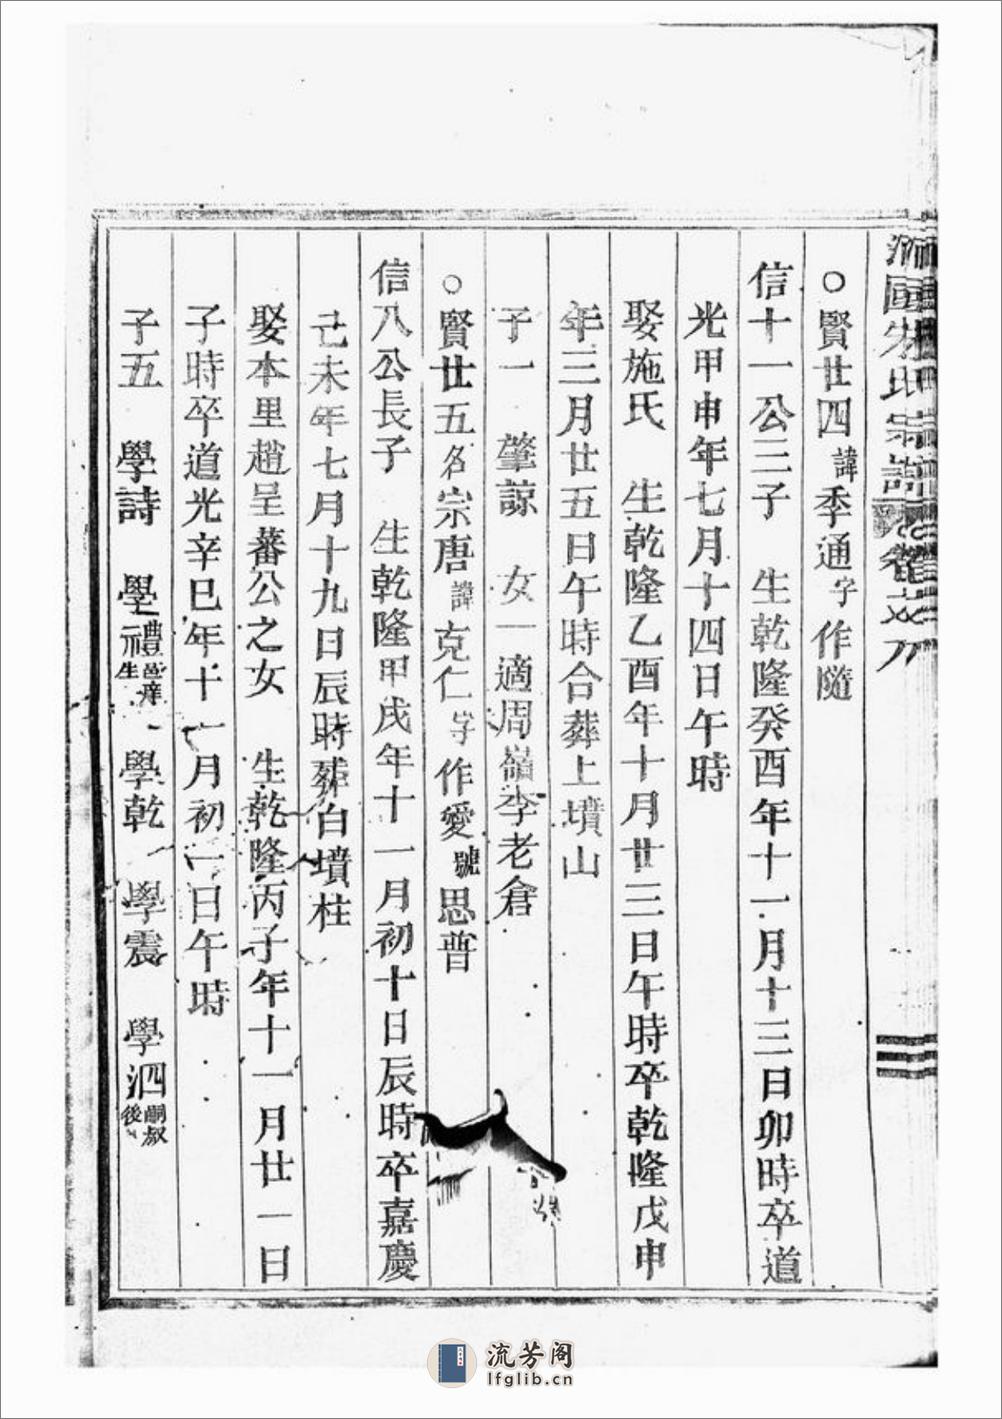 氏宗譜卷
○賢廿四諱季通字作隨
信十一公三子　生乾隆癸酉年十一月十三日卯時卒道
光甲申年七月十四日午時
娶施氏　生乾隆乙酉年十月廿三日午時卒乾隆戊申
年三月廿五日午時合葬上墳山
子一　肇諒　女一適周嶺李老倉
○賢廿五名宗唐諱克仁字作愛號思普
信八公長子　生乾隆甲戌年十一月初十日辰時卒嘉慶
己未年七月十九日辰時葬白墳柱
娶本里趙呈蕃公之女　生乾隆丙子年十一月廿一日
子時卒道光辛巳年十一月初一日午時
子五　學詩　學禮邑庠生　學乾　學震　學泗嗣叔後
流芳阁
lfglib.cn